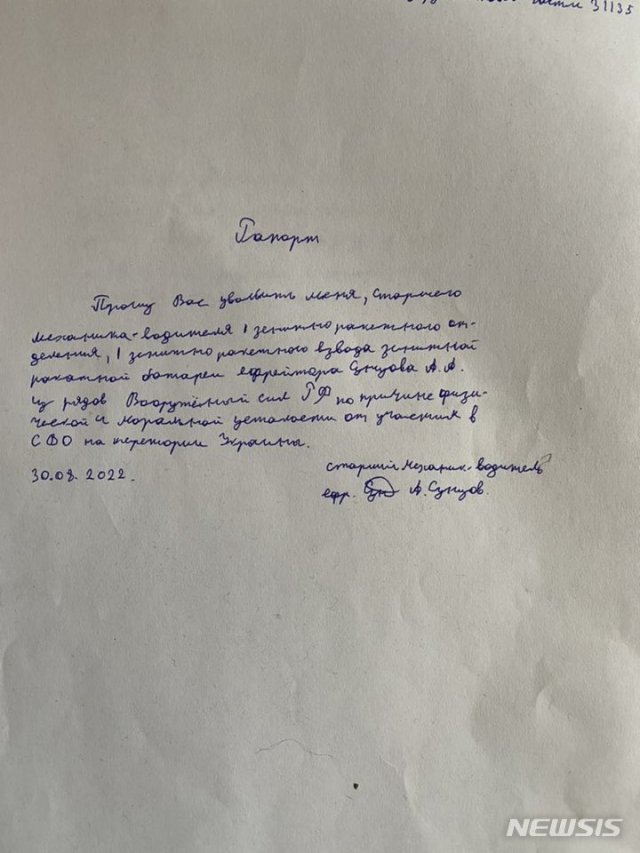 части 31135
Рапорт
Прошу Вас уволить меня, старшего
механика-водителя 1 зенитно ракетного от-
деления, 1 зенитно ракетного взвода зенитной
ракатной батареи ефрейтора А.А.
из рядов Вооружённый сил РФ по причине физи-
ческой и моральной усталости от участия в
СВО на территории Украины.
30.08.2022.
старший механик-водитель
ефр. А.
NEWSIS